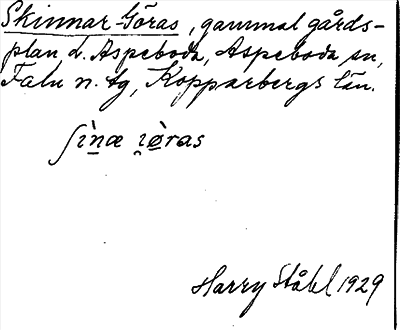 Skinnar-Göras, gammal gårds-
plan i. Aspeboda, Aspeboda sn,
Falu n. tg, Kopparbergs län.
ʃìnæ ı̯ø̀ras
Harry Ståhl 1929